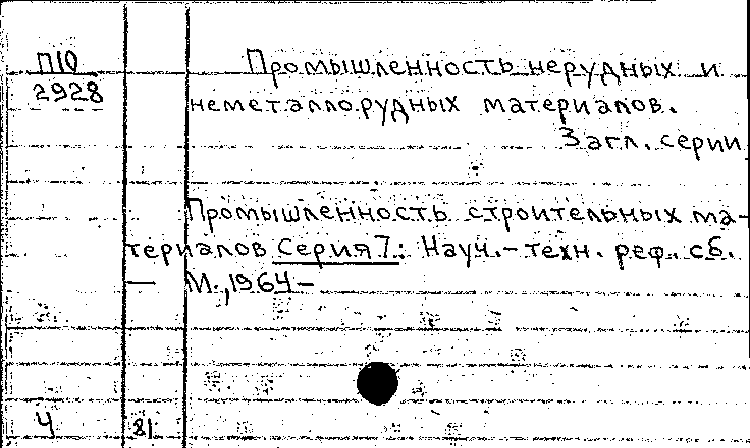 П10
2928
Промышленность нерудных и
неметаллорудных материалов.
Загл. серии
Промышленность строительных ма-
териалов Серия 7.: Науч.-техн. реф. сб.
— М., 1964 —
Ч 81